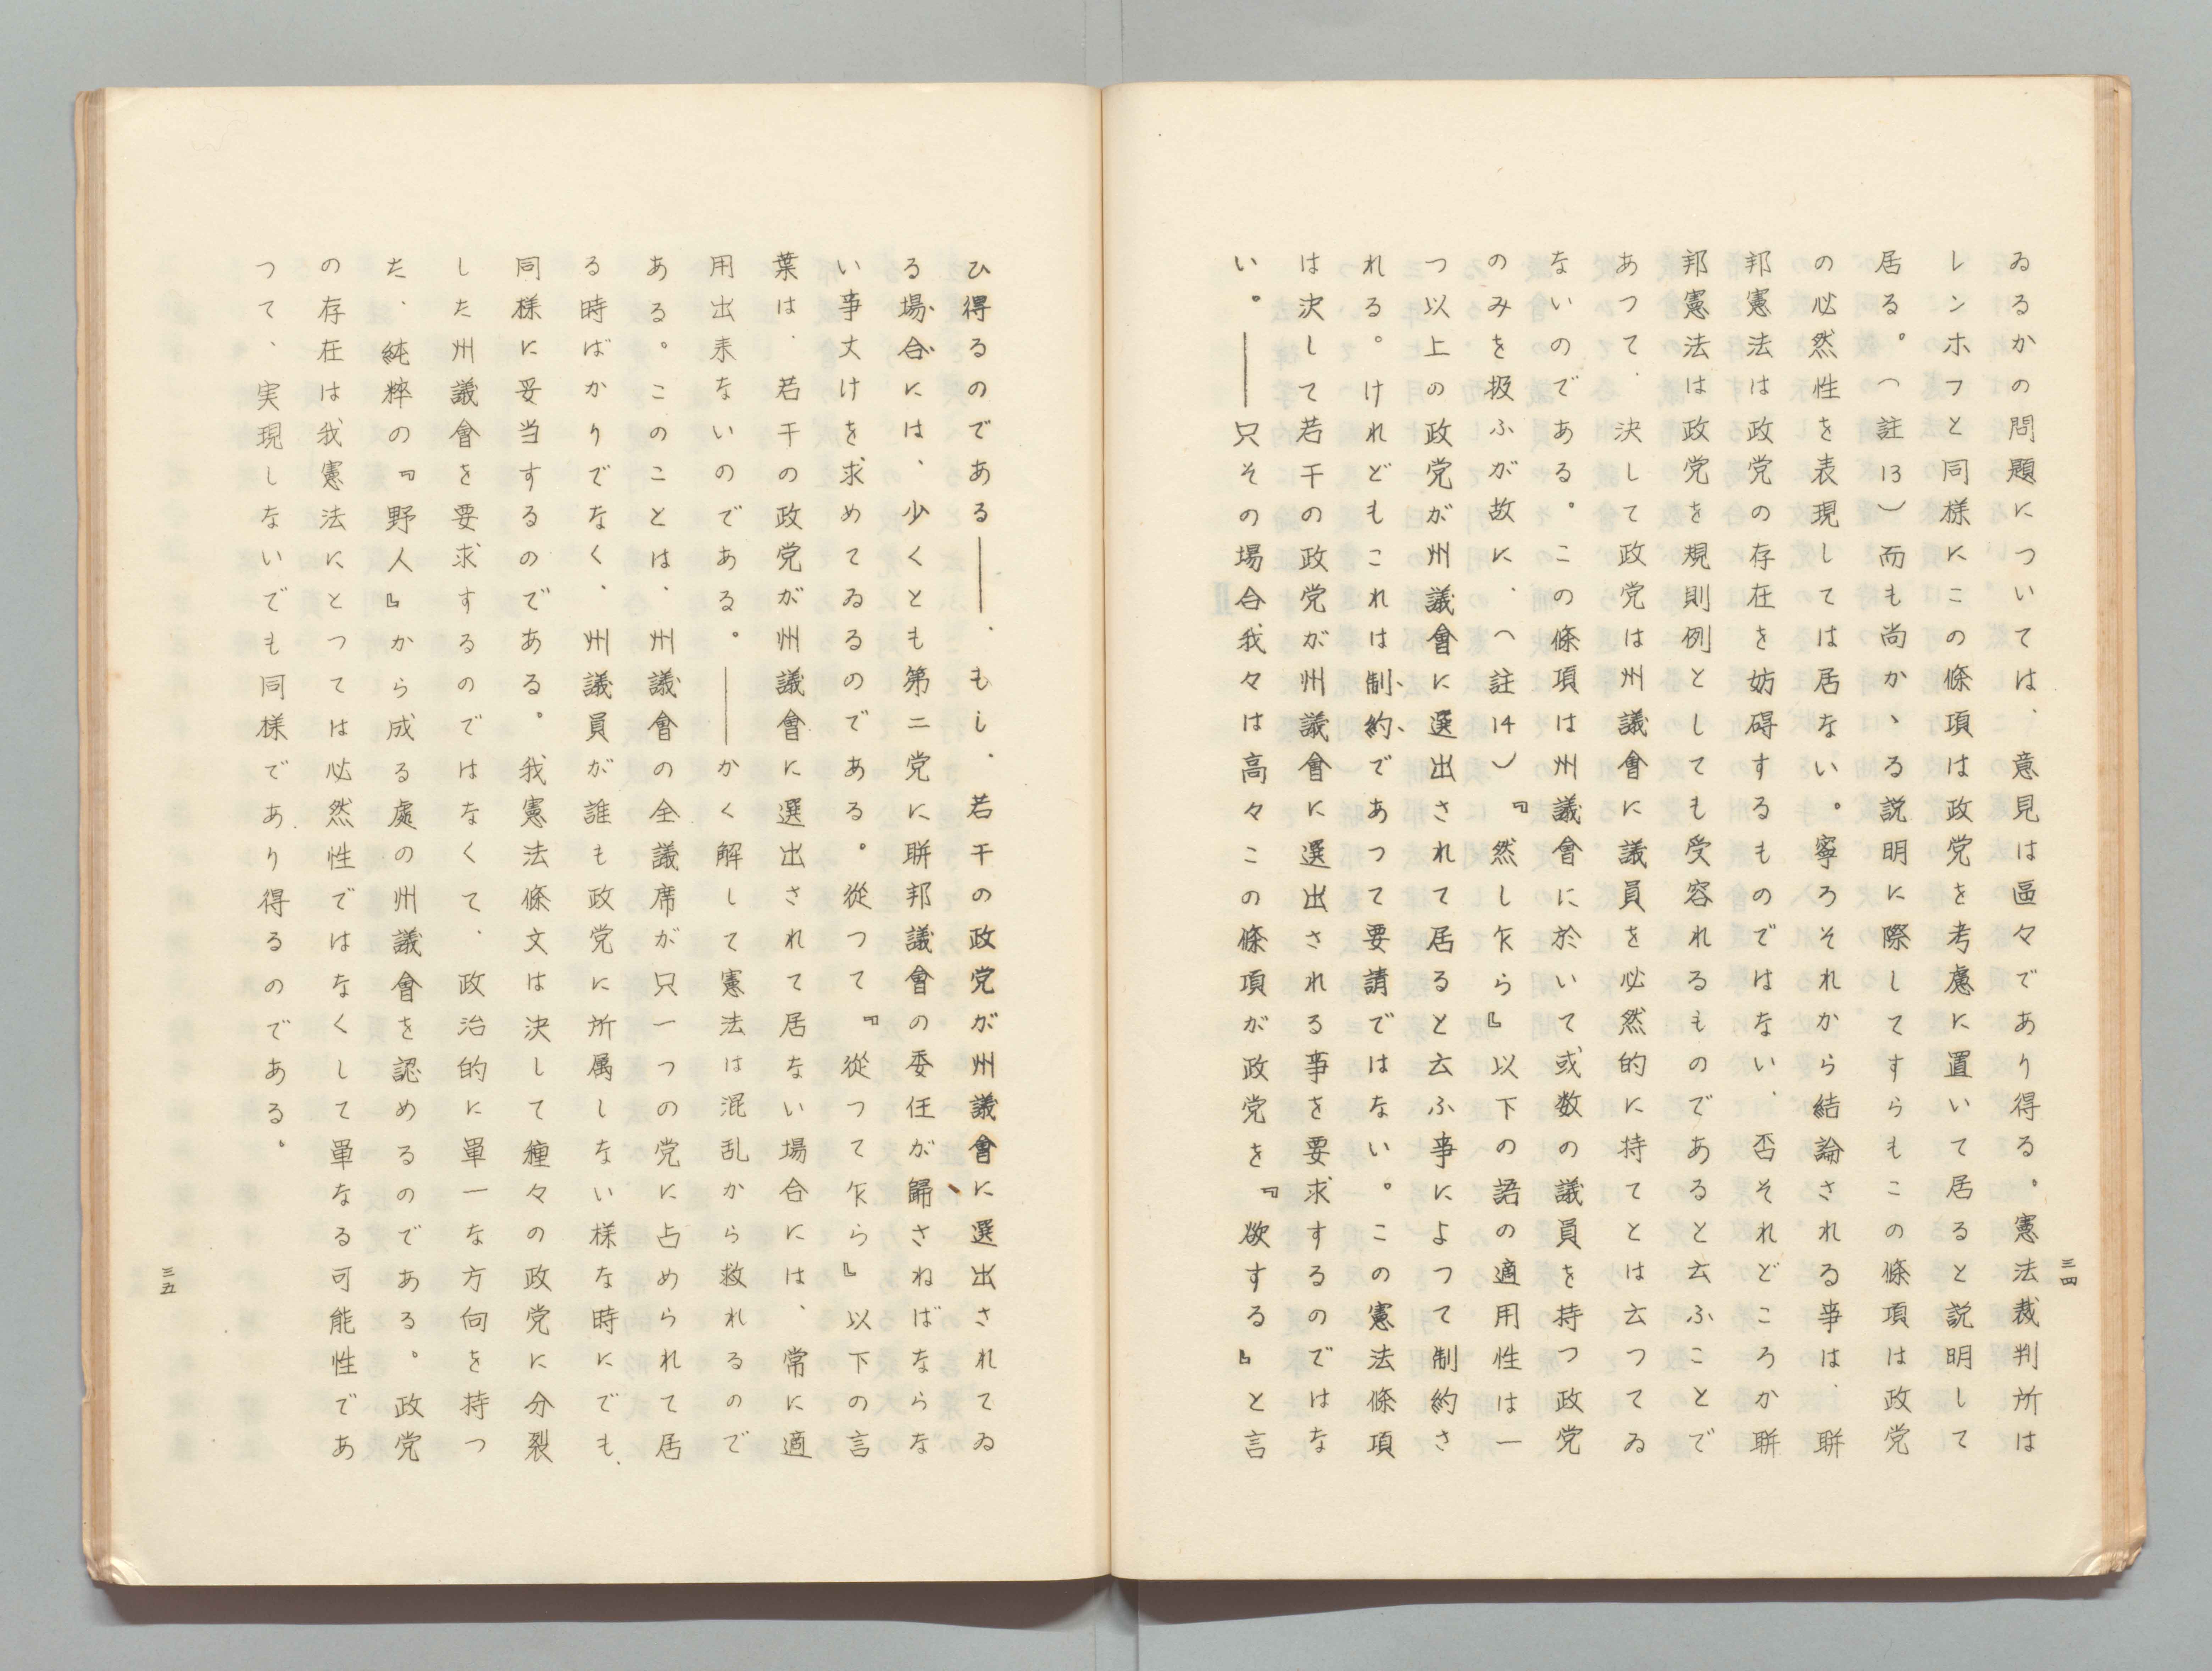 三四
ゐるかの問題については、意見は區々であり得る。憲法裁判所は
レンホフと同様にこの條項は政党を考慮に置いて居ると説明して
居る。（註13）而も尚かゝる説明に際してすらもこの條項は政党
の必然性を表現しては居ない。寧ろそれから結論される事は、聨
邦憲法は政党の存在を妨碍するものではない、否それどころか聨
邦憲法は政党を規則例としても受容れるものであると云ふことで
あつて、決して政党は州議會に議員を必然的に持てとは云つてゐ
ないのである。この條項は州議會に於いて或数の議員を持つ政党
のみを扱ふが故に、（註14）『然し乍ら』以下の語の適用性は一
つ以上の政党が州議會に選出されて居ると云ふ事によつて制約さ
れる。けれどもこれは制約であつて要請ではない。この憲法條項
は決して若干の政党が州議會に選出される事を要求するのではな
い。――只その場合我々は高々この條項が政党を『欲する』と言
ひ得るのである――、もし、若干の政党が州議會に選出されてゐ
る場合には、少くとも第二党に聨邦議會の委任が歸さねばならな
い事丈けを求めてゐるのである。從つて『從つて乍ら』以下の言
葉は、若干の政党が州議會に選出されて居ない場合には、常に適
用出来ないのである。――かく解して憲法は混乱から救れるので
ある。このことは、州議會の全議席が只一つの党に占められて居
る時ばかりでなく、州議員が誰も政党に所属しない様な時にでも、
同様に妥当するのである。我憲法條文は決して種々の政党に分裂
した州議會を要求するのではなくて、政治的に單一な方向を持つ
た、純粹の『野人』から成る處の州議會を認めるのである。政党
の存在は我憲法にとつては必然性ではなくして單なる可能性であ
つて、実現しないでも同様であり得るのである。
三五